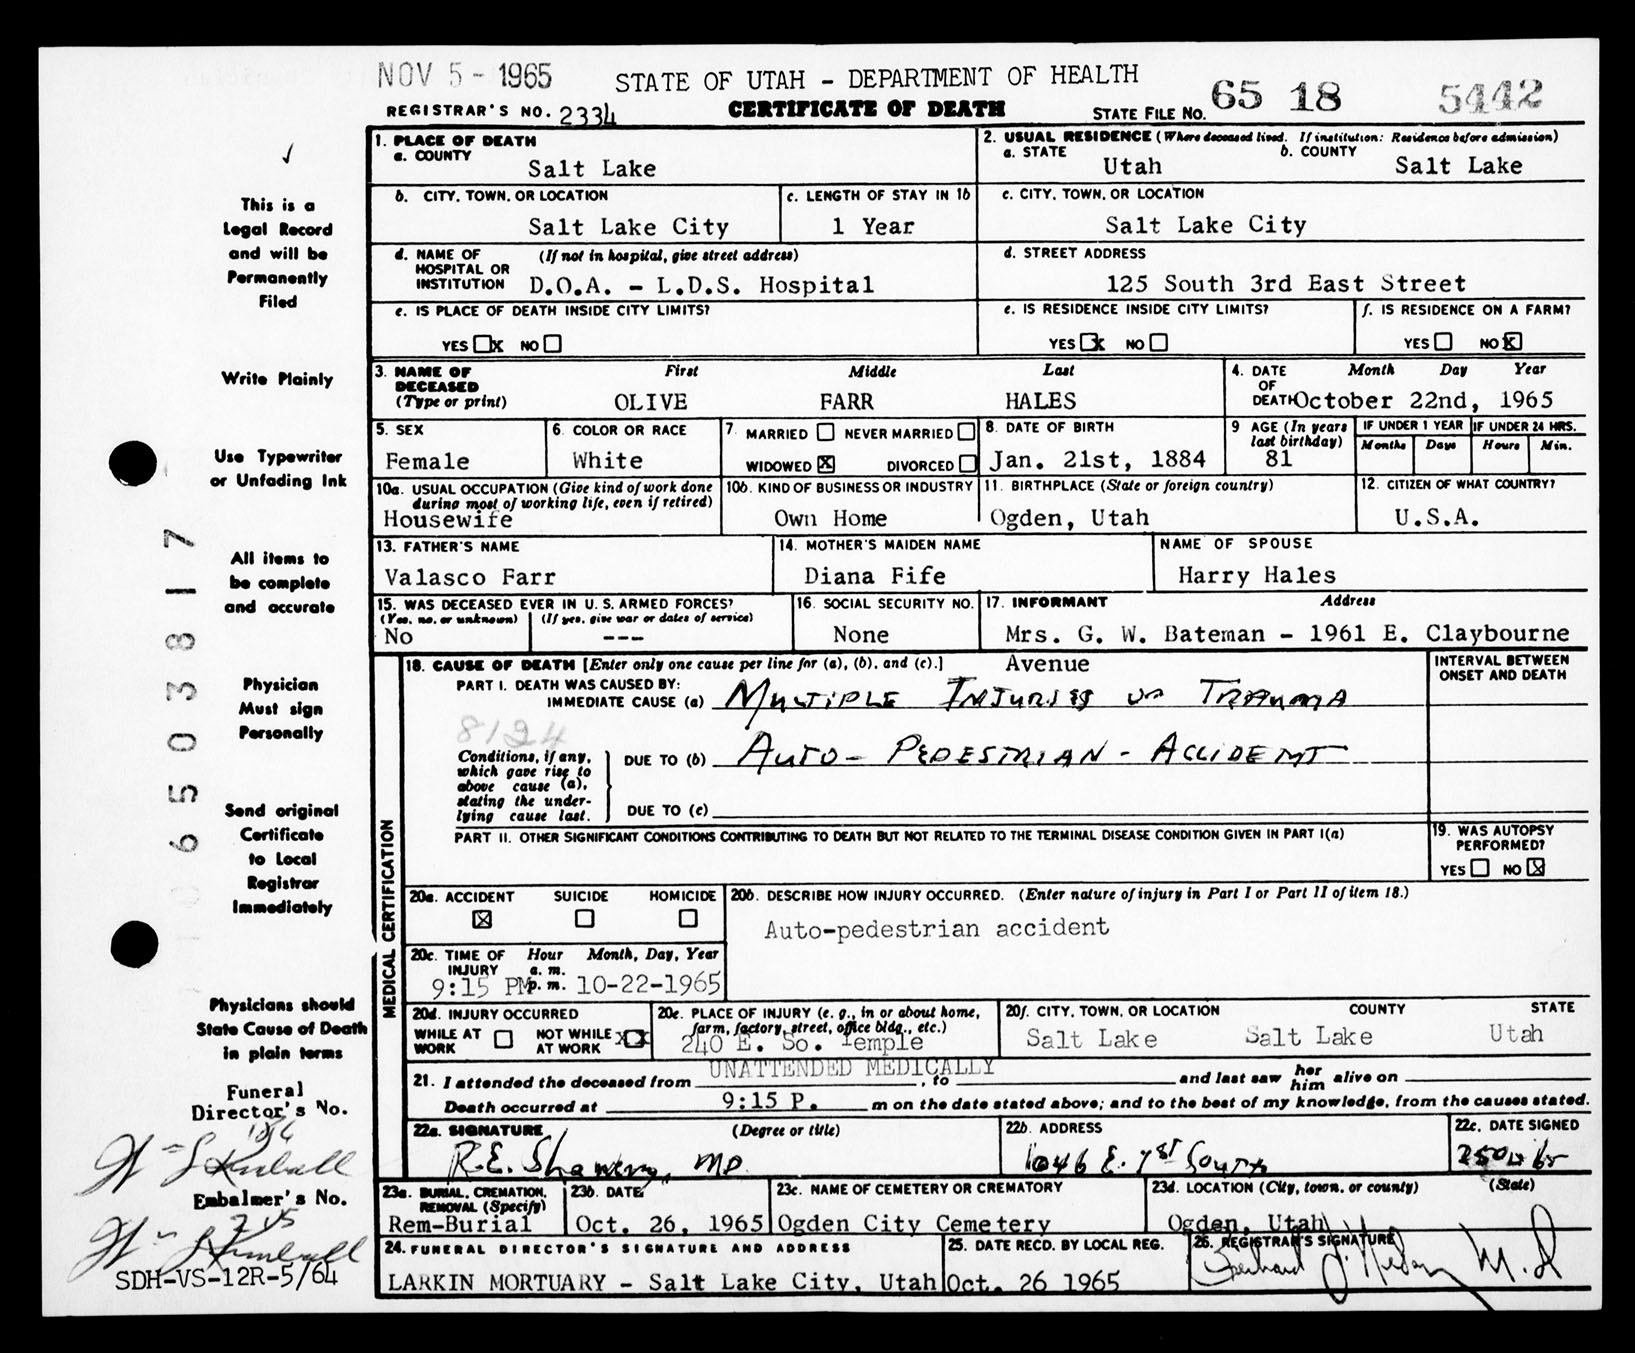 NOV 5 - 1965
STATE OF UTAH - DEPARTMENT OF HEALTH
REGISTRAR'S NO. 2334
CERTIFICATE OF DEATH
STATE FILE NO. 65 18 5442
This is a
Legal Record
and will be
Permanently
Filed
Write Plainly
Use Typewriter
or Unfading Ink
All items to
be complete
and accurate
Physician
Must sign
Personally
Send original
Certificate
to Local
Registrar
Immediately
Physicians should
State Cause of Death
in plain terms
Funeral
Director's No.
Embalmer's No.
SDH-VS-12R-5/64
6 5 0 3 8 1 7
1. PLACE OF DEATH
a. COUNTY
Salt Lake
2. USUAL RESIDENCE (Where deceased lived. If institution: Residence before admission)
a. STATE b. COUNTY
Utah Salt Lake
b. CITY, TOWN, OR LOCATION
Salt Lake City
c. LENGTH OF STAY IN 1b
1 Year
c. CITY, TOWN, OR LOCATION
Salt Lake City
d. NAME OF (If not in hospital, give street address)
HOSPITAL OR
INSTITUTION D.O.A. - L.D.S. Hospital
d. STREET ADDRESS
125 South 3rd East Street
e. IS PLACE OF DEATH INSIDE CITY LIMITS?
YES X NO
e. IS RESIDENCE INSIDE CITY LIMITS?
YES X NO
f. IS RESIDENCE ON A FARM?
YES NO X
3. NAME OF First Middle Last
DECEASED
(Type or print) OLIVE FARR HALES
4. DATE Month Day Year
OF
DEATH October 22nd, 1965
5. SEX
Female
6. COLOR OR RACE
White
7. MARRIED NEVER MARRIED
WIDOWED X DIVORCED
8. DATE OF BIRTH
Jan. 21st, 1884
9 AGE (In years
last birthday)
81
IF UNDER 1 YEAR IF UNDER 24 HRS.
Months Days Hours Min.
10a. USUAL OCCUPATION (Give kind of work done
during most of working life, even if retired)
Housewife
10b. KIND OF BUSINESS OR INDUSTRY
Own Home
11. BIRTHPLACE (State or foreign country)
Ogden, Utah
12. CITIZEN OF WHAT COUNTRY?
U.S.A.
13. FATHER'S NAME
Valasco Farr
14. MOTHER'S MAIDEN NAME
Diana Fife
NAME OF SPOUSE
Harry Hales
15. WAS DECEASED EVER IN U.S. ARMED FORCES?
(Yes, no, or unknown) (If yes, give war or dates of service)
No ---
16. SOCIAL SECURITY NO.
None
17. INFORMANT Address
Mrs. G. W. Bateman - 1961 E. Claybourne
Avenue
MEDICAL CERTIFICATION
18. CAUSE OF DEATH [Enter only one cause per line for (a), (b), and (c).]
INTERVAL BETWEEN
ONSET AND DEATH
PART I. DEATH WAS CAUSED BY:
IMMEDIATE CAUSE (a) MULTIPLE INJURIES TRAUMA
8124
Conditions, if any,
which gave rise to
above cause (a),
stating the under-
lying cause last.
DUE TO (b) AUTO - PEDESTRIAN - ACCIDENT
DUE TO (c)
PART II. OTHER SIGNIFICANT CONDITIONS CONTRIBUTING TO DEATH BUT NOT RELATED TO THE TERMINAL DISEASE CONDITION GIVEN IN PART I(a)
19. WAS AUTOPSY
PERFORMED?
YES NO X
20a. ACCIDENT SUICIDE HOMICIDE
X
20b. DESCRIBE HOW INJURY OCCURRED. (Enter nature of injury in Part I or Part II of item 18.)
Auto-pedestrian accident
20c. TIME OF Hour Month, Day, Year
INJURY a. m.
9:15 PM p. m. 10-22-1965
20d. INJURY OCCURRED
WHILE AT NOT WHILE XX
WORK AT WORK
20e. PLACE OF INJURY (e. g., in or about home,
farm, factory, street, office bldg., etc.)
240 E. So. Temple
20f. CITY, TOWN, OR LOCATION COUNTY STATE
Salt Lake Salt Lake Utah
UNATTENDED MEDICALLY
21. I attended the deceased from , to and last saw her him alive on
Death occurred at 9:15 P. m on the date stated above; and to the best of my knowledge, from the causes stated.
22a. SIGNATURE (Degree or title)
R.E. MD.
22b. ADDRESS
1046 E. 1st South
22c. DATE SIGNED
25 Oct 65
23a. BURIAL, CREMATION,
REMOVAL (Specify)
Rem-Burial
23b. DATE
Oct. 26, 1965
23c. NAME OF CEMETERY OR CREMATORY
Ogden City Cemetery
23d. LOCATION (City, town, or county) (State)
Ogden, Utah
24. FUNERAL DIRECTOR'S SIGNATURE AND ADDRESS
LARKIN MORTUARY - Salt Lake City, Utah
25. DATE RECD. BY LOCAL REG.
Oct. 26 1965
26. REGISTRAR'S SIGNATURE
M.D